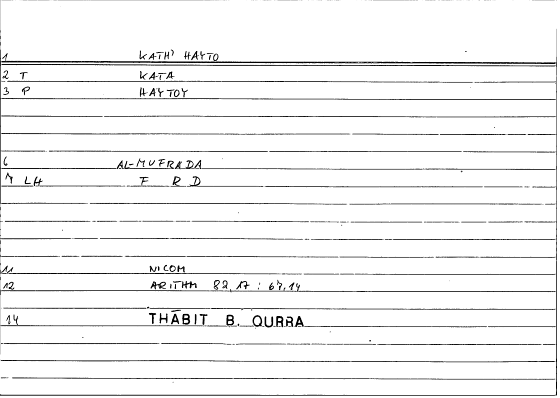 1 KATH' HAYTO
2 T KATA
3 P HAYTOY
6 AL-MUFRADA
7 LH F R D
11 NICOM
12 ARITHM 82,17 : 67,14
14 THĀBIT B. QURRA